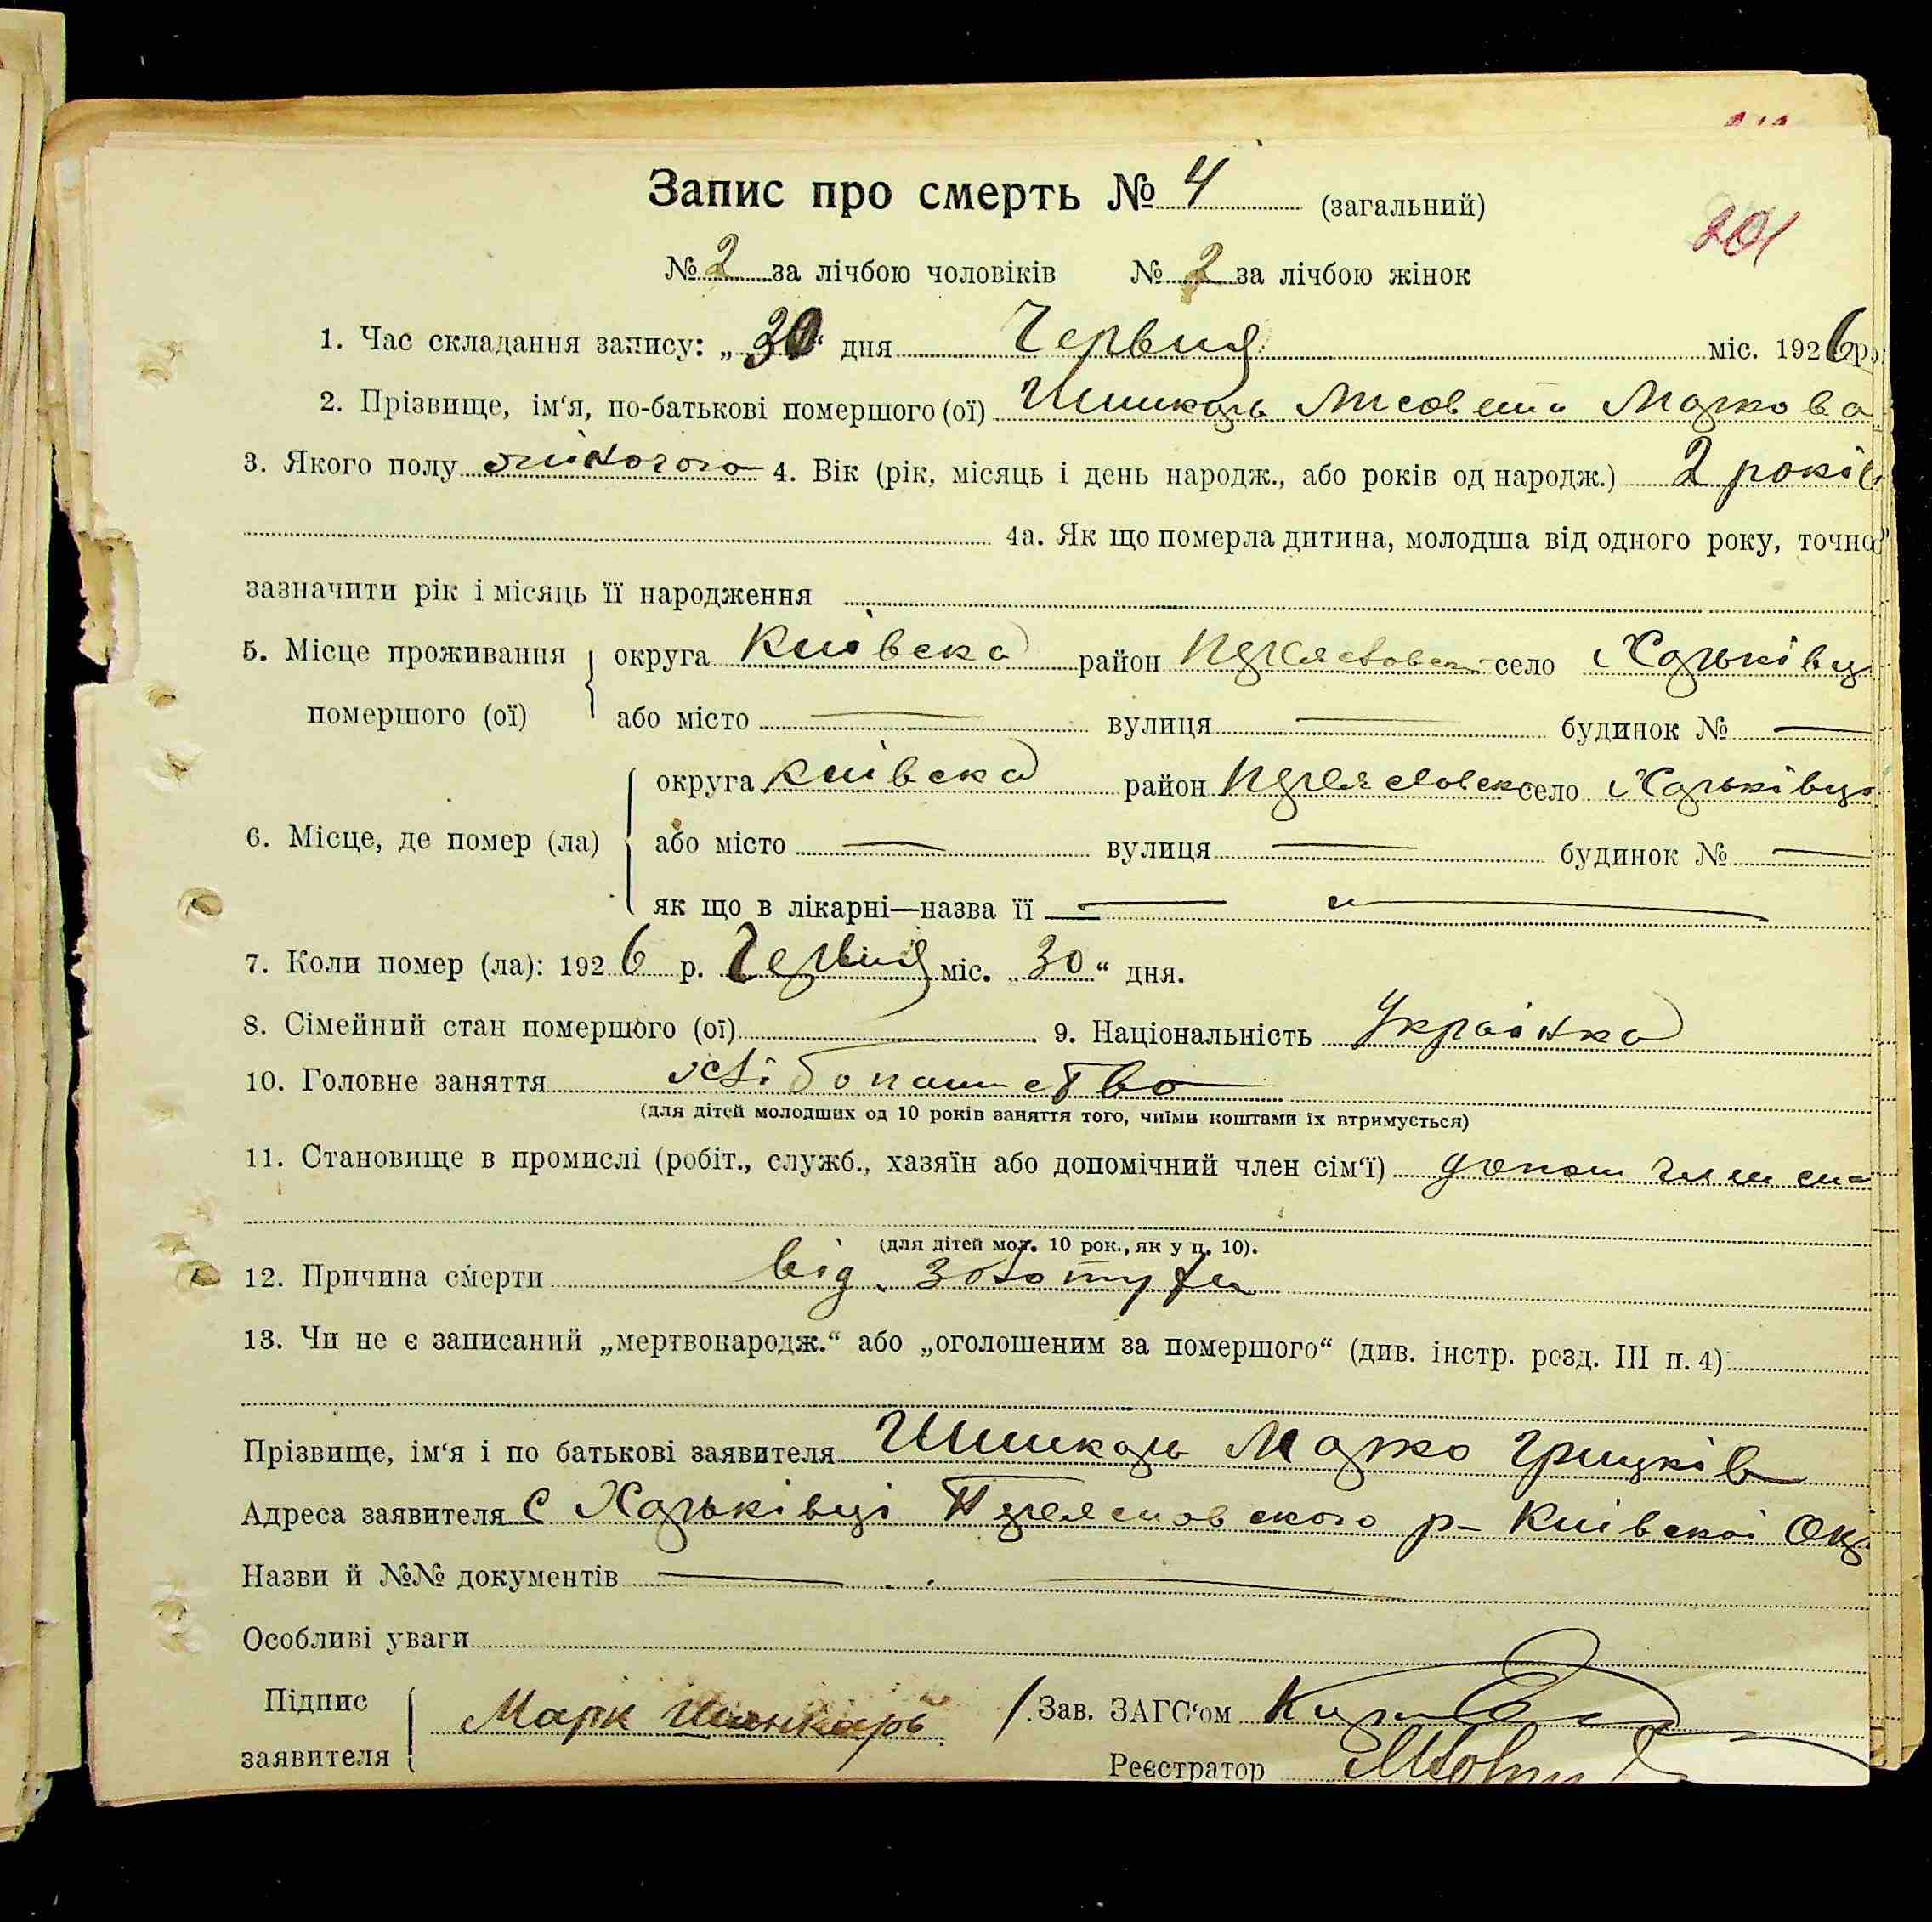 Запис про смерть № 4 (загальний)
201
№ 2 за лічбою чоловіків № 2 за лічбою жінок
1. Час складання запису: „30“ дня Червня міс. 1926 р.
2. Прізвище, ім‘я, по-батькові помершого (ої) Шинкарь Лисовета Маркова
3. Якого полу жіночого 4. Вік (рік, місяць і день народж., або років од народж.) 2 років
4а. Як що померла дитина, молодша від одного року, точно
зазначити рік і місяць її народження
5. Місце проживання округа Київска район село Харьківці
помершого (ої) або місто — вулиця — будинок № —
округа Київска район село Харьківці
6. Місце, де помер (ла) або місто — вулиця — будинок № —
як що в лікарні—назва її —
7. Коли помер (ла): 1926 р. Червня міс. „30“ дня.
8. Сімейний стан помершого (ої) 9. Національність Українка
10. Головне заняття хлібопашество
(для дітей молодших од 10 років заняття того, чиїми коштами їх втримується)
11. Становище в промислі (робіт., служб., хазяїн або допомічний член сім‘ї)
(для дітей мол. 10 рок., як у п. 10).
12. Причина смерти від золотухи
13. Чи не є записаний „мертвонародж.“ або „оголошеним за помершого“ (див. інстр. розд. III п. 4)
Прізвище, ім‘я і по батькові заявителя Шинкарь Марко Грицків
Адреса заявителя С Харьківці р- Київскої Окр
Назви й №№ документів —
Особливі уваги
Підпис заявителя Марк Шинкарь Зав. ЗАГС‘ом
Реєстратор